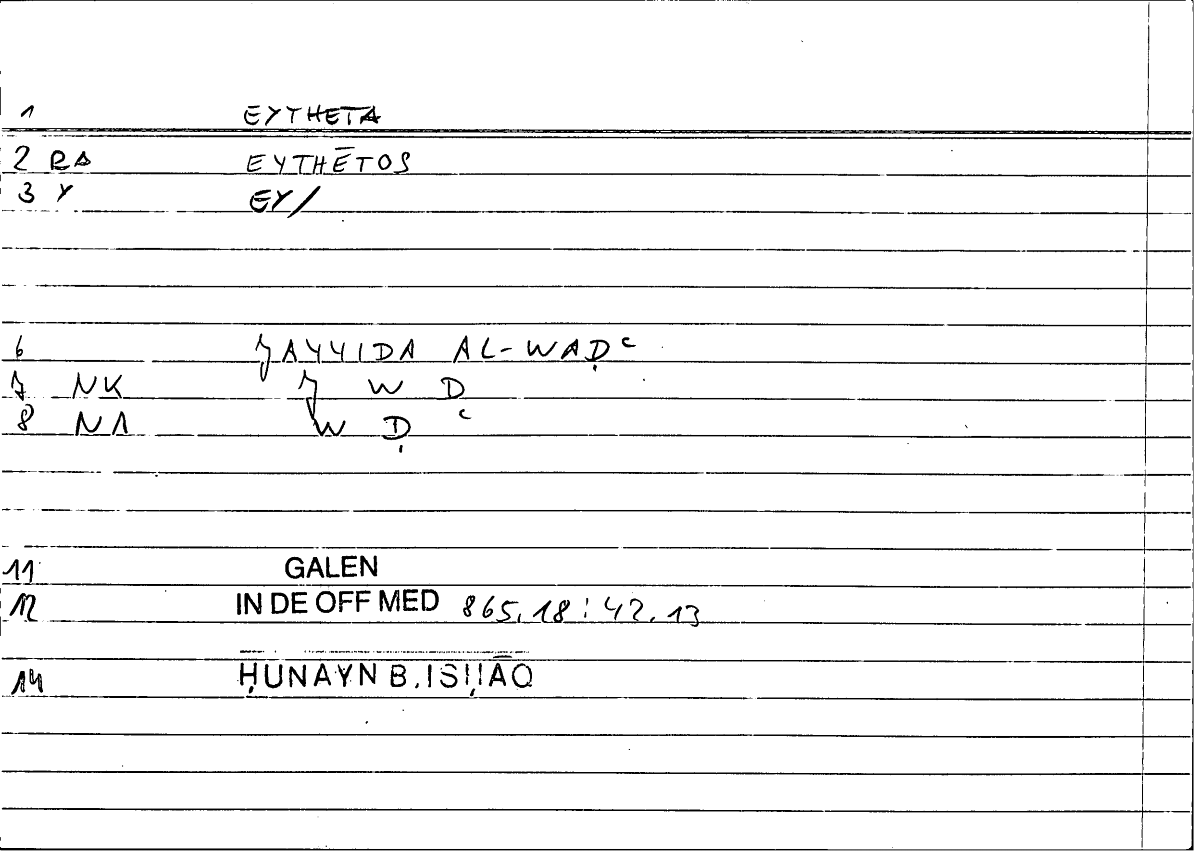 1 EYTHETA
2 RA EYTHĒTOS
3 Y EY/
6 ĞAYYIDA AL-WAḌʿ
7 NK Ğ W D
8 NA W Ḍ ʿ
11 GALEN
12 IN DE OFF MED 865.18:42.13
14 ḤUNAYN B.ISḤĀQ